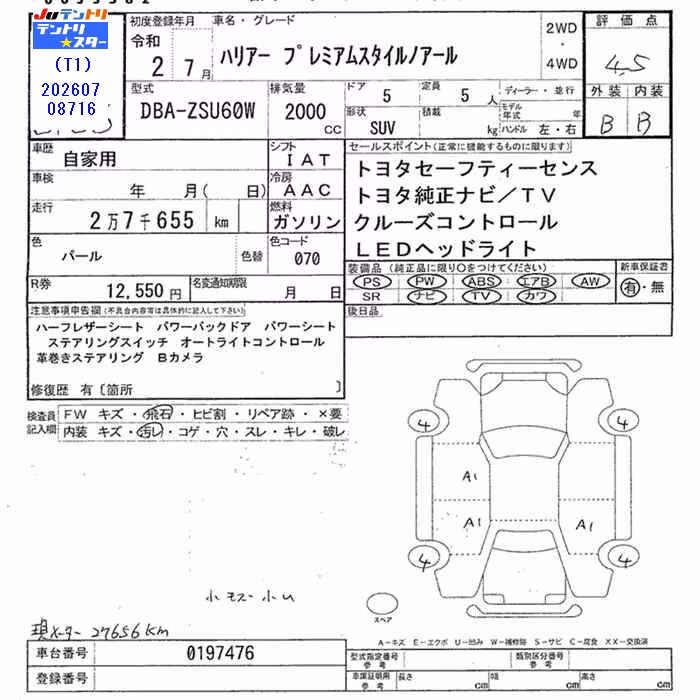 Juテントリ
テントリ★スター
(T1)
202607
08716
初度登録年月 車名・グレード
令和 2 7月
ハリアー プレミアムスタイルノアール
2WD
・
4WD
評価点
4.5
外装 内装
B B
型式
DBA-ZSU60W
排気量
2000
cc
ドア 5 定員 5人
形状 SUV 積載 kg
ディーラー・並行
モデル年式 年
ハンドル 左・右
車歴 自家用
シフト IAT
車検 年 月(日)
冷房 AAC
走行 2万7千655 km
燃料 ガソリン
色 パール 色替
色コード 070
R券 12,550円
名変通知期限 月 日
セールスポイント(正常に機能するものに限ります)
トヨタセーフティーセンス
トヨタ純正ナビ/TV
クルーズコントロール
LEDヘッドライト
装備品(純正品に限り○をつけてください) 新車保証書
PS PW ABS エアB AW
SR ナビ TV カワ
有・無
後日品
注意事項申告欄(不具合内容等は具体的に記入して下さい)
ハーフレザーシート パワーバックドア パワーシート
ステアリングスイッチ オートライトコントロール
革巻きステアリング Bカメラ
修復歴 有〔箇所 〕
検査員記入欄
FW キズ・飛石・ヒビ割・リペア跡・×要
内装 キズ・汚レ・コゲ・穴・スレ・キレ・破レ
4 4
A1
A1 A1
4 4
スペア
現メーター 27656km
A-キズ E-エクボ U-凹み W-補修跡 S-サビ C-腐食 XX-交換済
車台番号 0197476
登録番号
型式指定番号 参考
類別区分番号 参考
車庫証明用 参考 長さ cm 幅 cm 高さ cm